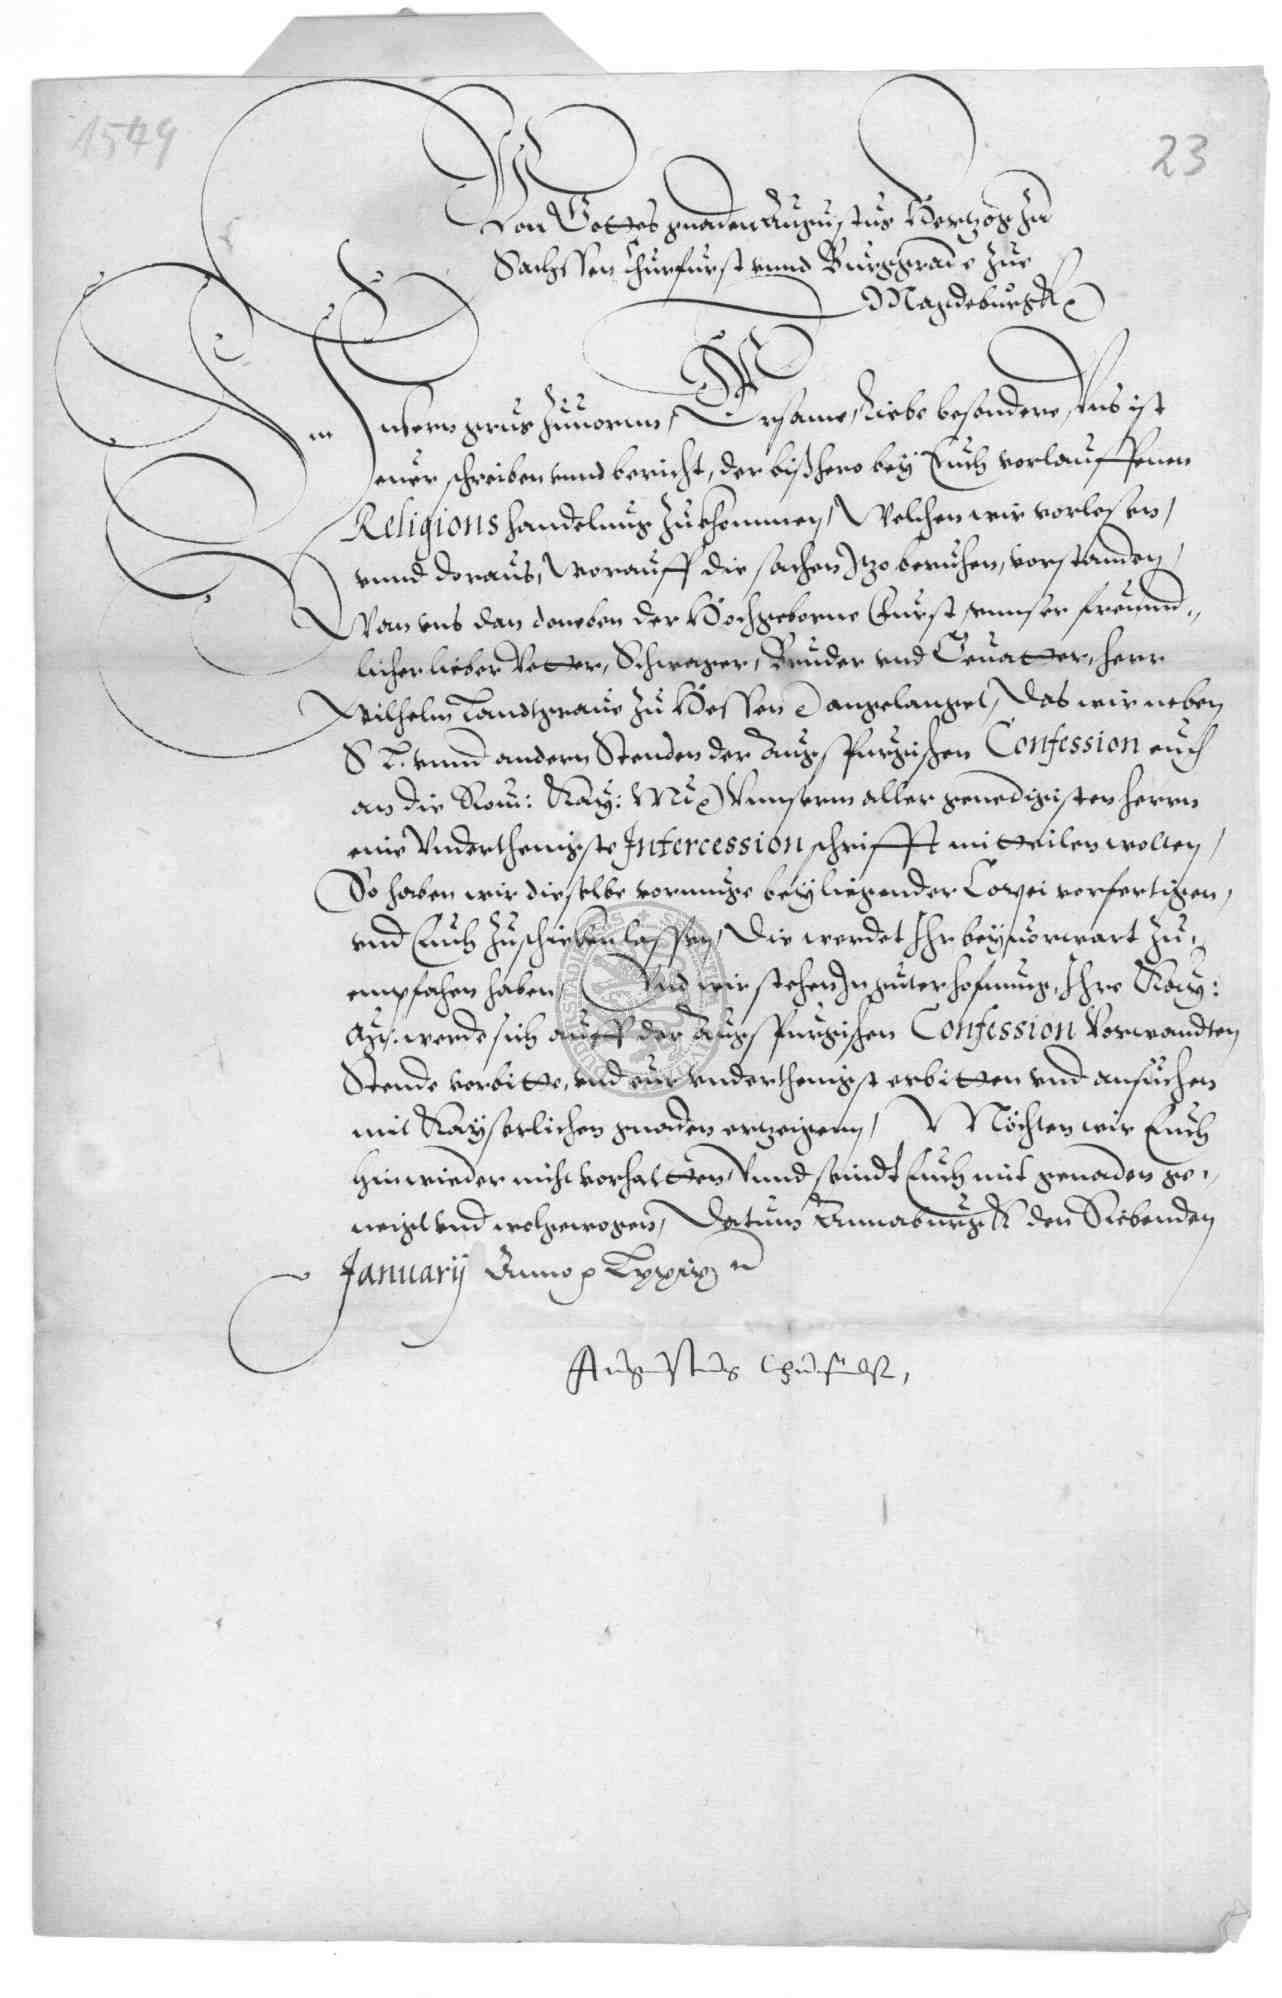 1579
23
Von Gottes gnaden Augustus Hertzog zu
Sachssen Churfurst vnnd Burggraue zue
Magdeburgk
Vnsern grus zuuornn, Ersame, Liebe besondere, Vns ist
euer schreiben vnnd bericht, der bißhero bey Euch vorlauffenen
Religions handelung zukhommen, Welchen wir vorlesen,
vnnd doraus, worauff die sachen Itzo beruhen, vorstanden,
Wan vns dan doneben der Hochgeborne Furst, vnnser freund-
licher lieber Vetter, Schwager, Bruder vnd Geuatter, herr
Wilhelm Landtgraue zu Hessen angelanget, Das wir neben
S L. vnnd andern Stenden der Augspurgischen Confession euch
an die Rom: Kay: Mt Vnnserm aller genedigisten herrn
eine Vnderthenigste Intercession schrifft mitteilen wolten,
So haben wir dieselbe vormuge beyliegender Copei verfertigen,
vnd Euch zuschicken lassen, Die werdet Ihr beyuorwart zu
empfahen haben, Vnd wir stehen In guter hofnung, Ihre Kay:
Mt. werde sich auff der Augspurgischen Confession Vorwandten
Stende vorbitte, vnd eur vnderthenigst erbitten vnd ansuchen
mit Kayserlichen gnaden ertzeigenn, Möchten wir Euch
hinwieder nicht vorhaltten, Vnnd seindt Euch mit genaden ge-
neigt vnd wolgewogen, Datum Annaburgk den Siebenden
Januarij Anno Lxxix
Augustus Churfurst,